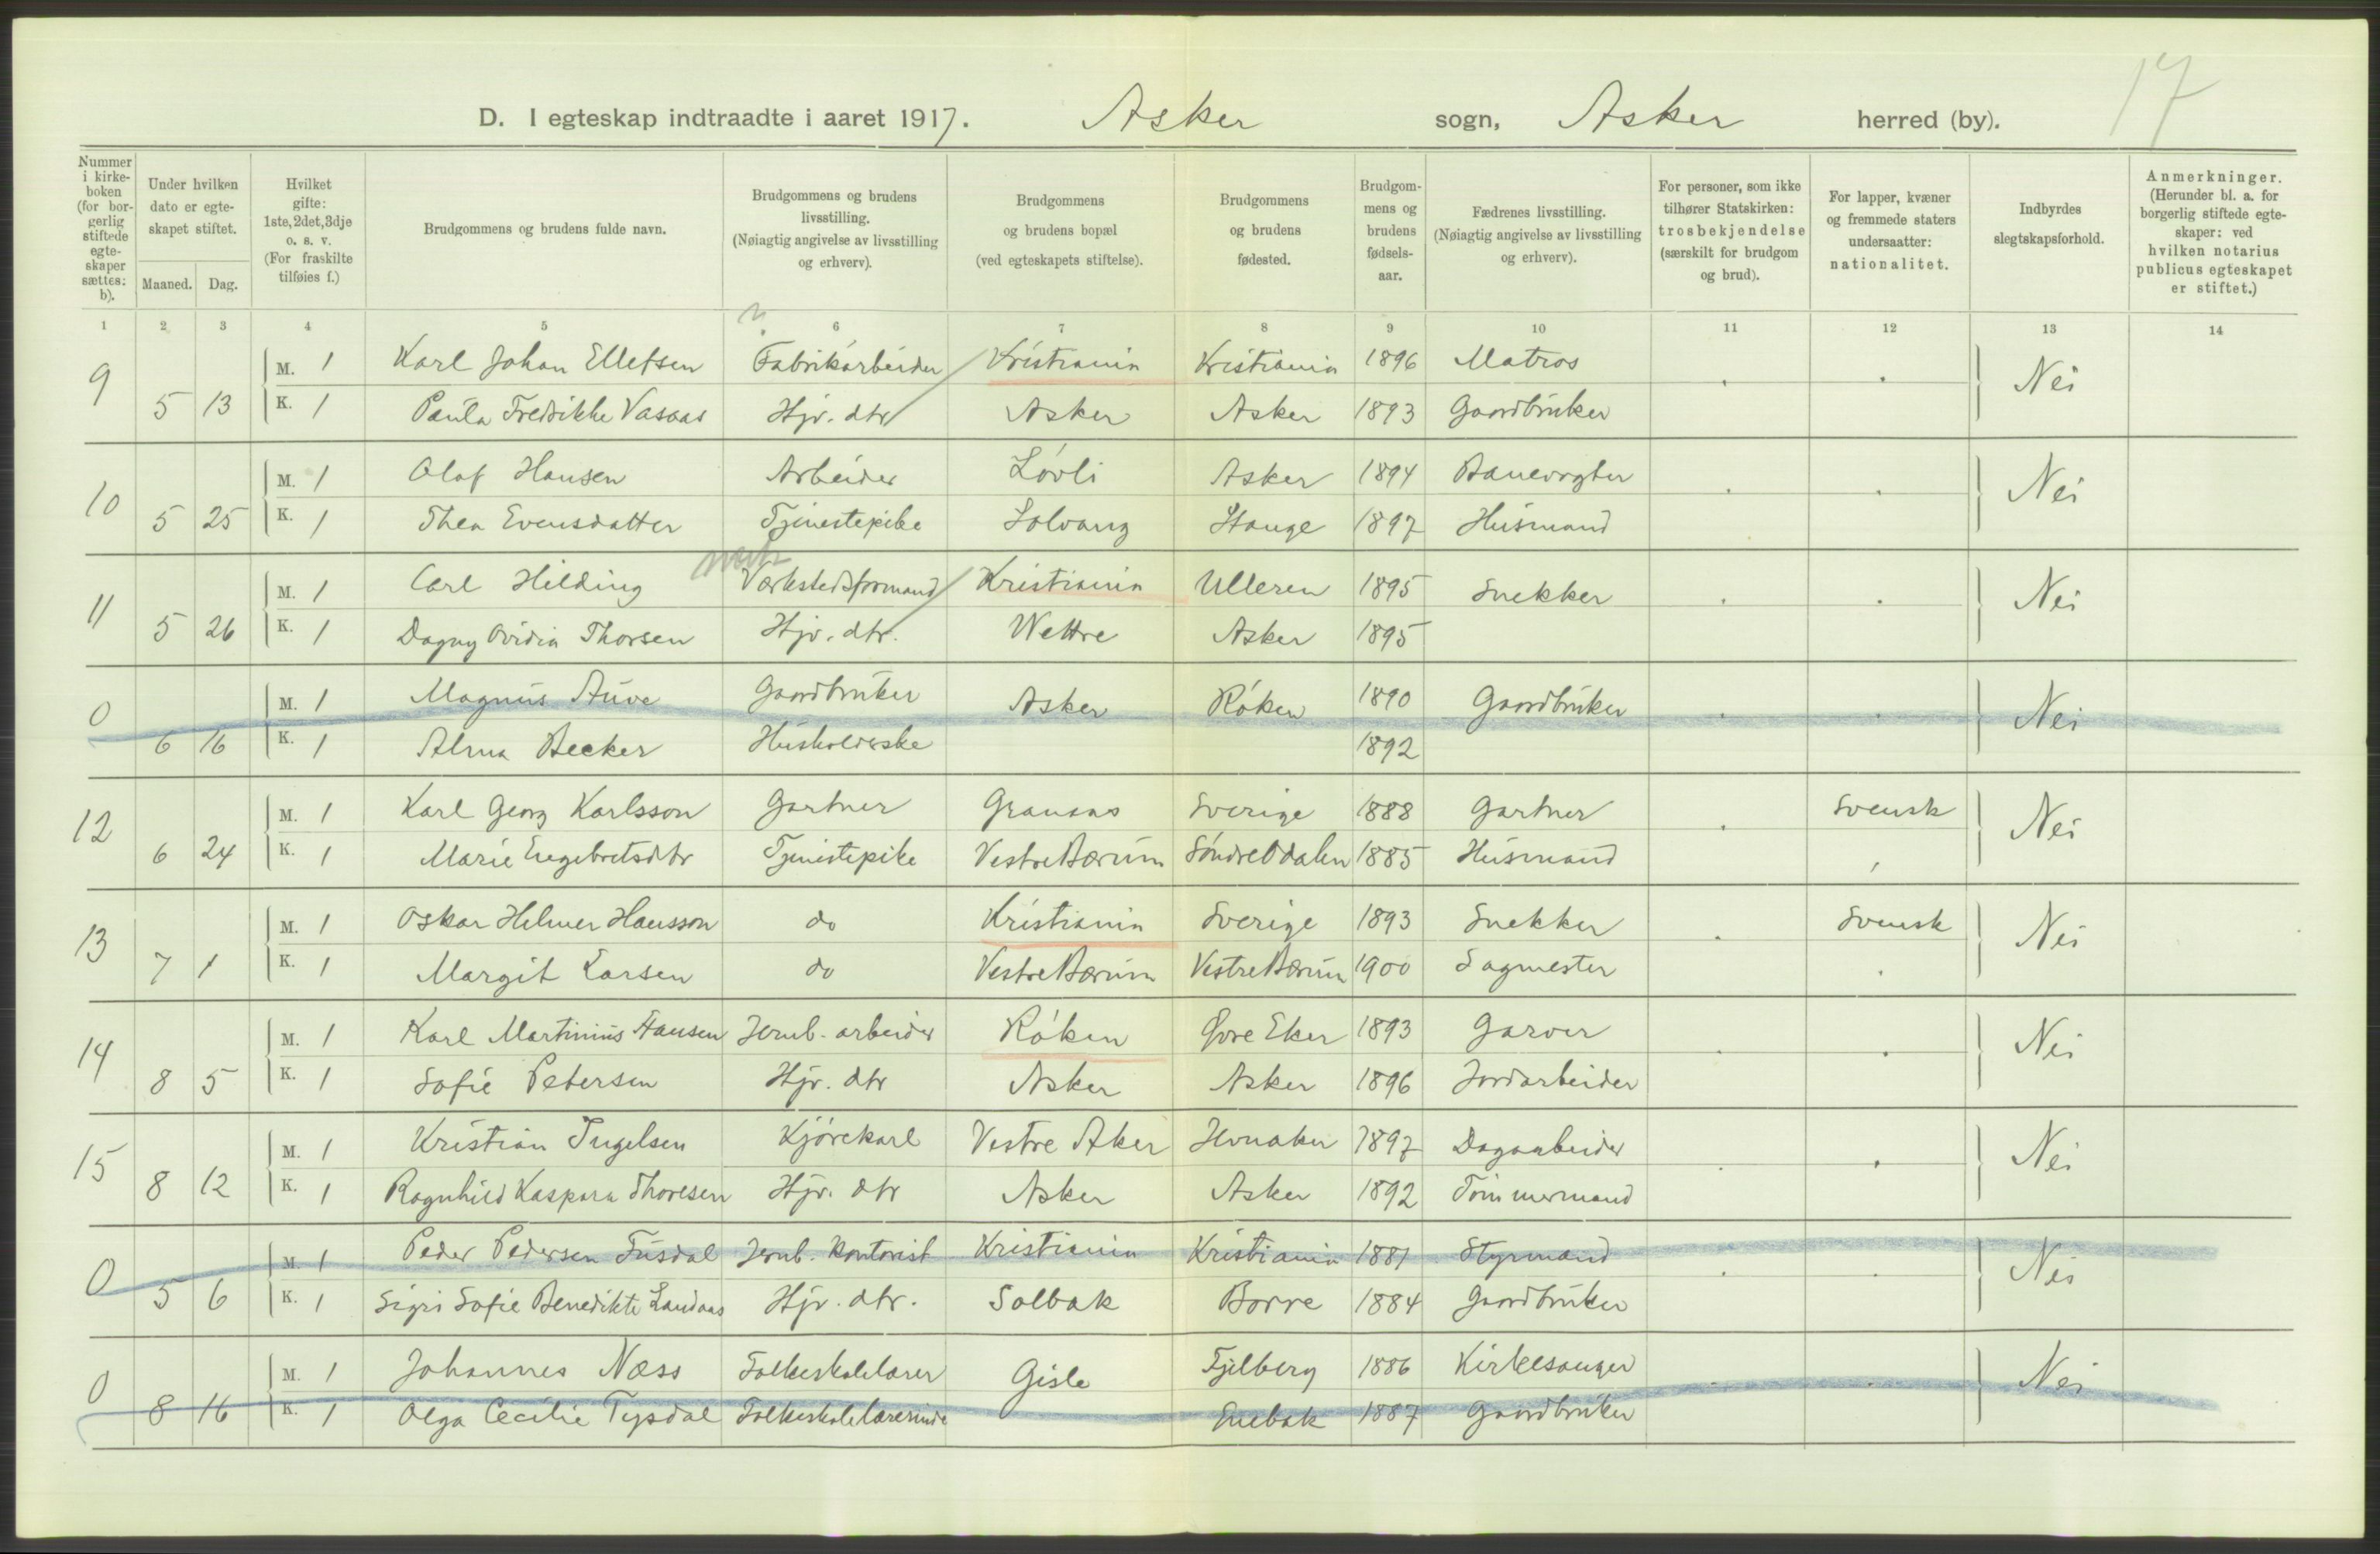 17
D. I egteskap indtraadte i aaret 1917. Asker sogn, Asker herred (by).
Nummer i kirke-boken (for bor-gerlig stiftede egte-skaper sættes: b).
Under hvilken dato er egte-skapet stiftet.
Maaned. Dag.
Hvilket gifte: 1ste, 2det, 3dje o. s. v. (For fraskilte tilføies f.)
Brudgommens og brudens fulde navn.
Brudgommens og brudens livsstilling. (Nøiagtig angivelse av livsstilling og erhverv).
Brudgommens og brudens bopæl (ved egteskapets stiftelse).
Brudgommens og brudens fødested.
Brudgom-mens og brudens fødsels-aar.
Fædrenes livsstilling. (Nøiagtig angivelse av livsstilling og erhverv).
For personer, som ikke tilhører Statskirken: trosbekjendelse (særskilt for brudgom og brud).
For lapper, kvæner og fremmede staters undersaatter: nationalitet.
Indbyrdes slegtskapsforhold.
Anmerkninger. (Herunder bl. a. for borgerlig stiftede egte-skaper: ved hvilken notarius publicus egteskapet er stiftet.)
1 2 3 4 5 6 7 8 9 10 11 12 13 14
9 M. 1 Karl Johan Ellefsen Fabrikarbeider Kristiania Kristiania 1896 Matros . . Nei
5 13 K. 1 Paula Fredrikke Vasaas Hjv. dtr Asker Asker 1893 Gaardbruker
10 M. 1 Olaf Hansen Arbeider Løvli Asker 1894 Banevogter . . Nei
5 25 K. 1 Thea Evensdatter Tjenestepike Solvang Stange 1897 Husmand
11 M. 1 Carl Hilding Værkstedsformand Kristiania Ulleren 1895 Snekker . . Nei
5 26 K. 1 Dagny Ovidia Thorsen Hjv. dtr. Wettre Asker 1895
0 M. 1 Magnus Auve Gaardbruker Asker Røken 1890 Gaardbruker . . Nei
6 16 K. 1 Alma Becker Husholderske 1892
12 M. 1 Karl Georg Karlsson Gartner Granaas Sverige 1888 Gartner . Svensk Nei
6 24 K. 1 Marie Engebretsdtr Tjenistepike Vestre Bærum Søndre Odalen 1885 Husmand
13 M. 1 Oskar Helmer Hansson do Kristiania Sverige 1893 Snekker . Svensk Nei
7 1 K. 1 Margit Larsen do Vestre Bærum Vestre Bærum 1900 Sagmester .
14 M. 1 Karl Martinius Hansen Jernb. arbeider Røken Øvre Eker 1893 Garver . . Nei
8 5 K. 1 Sofie Petersen Hjv. dtr Asker Asker 1896 Jordarbeider
15 M. 1 Kristian Ingelsen Kjørekarl Vestre Aker 1897 Dagarbeider . . Nei
8 12 K. 1 Ragnhild Kaspara Thoresen Hjv. dtr Asker Asker 1892 Tømmermand
0 M. 1 Peder Pedersen Fusdal Jernb. kontorist Kristiania Kristiania 1881 Styrmand . . Nei
5 6 K. 1 Sigri Sofie Benedikte Landaas Hjv. dtr. Solbak Borre 1884 Gaardbruker
0 M. 1 Johannes Næss Folkeskolelærer Gisle Fjelberg 1886 Kirkesanger . . Nei
8 16 K. 1 Olga Cecilie Tysdal Folkeskolelærerinde Enebak 1887 Gaardbruker